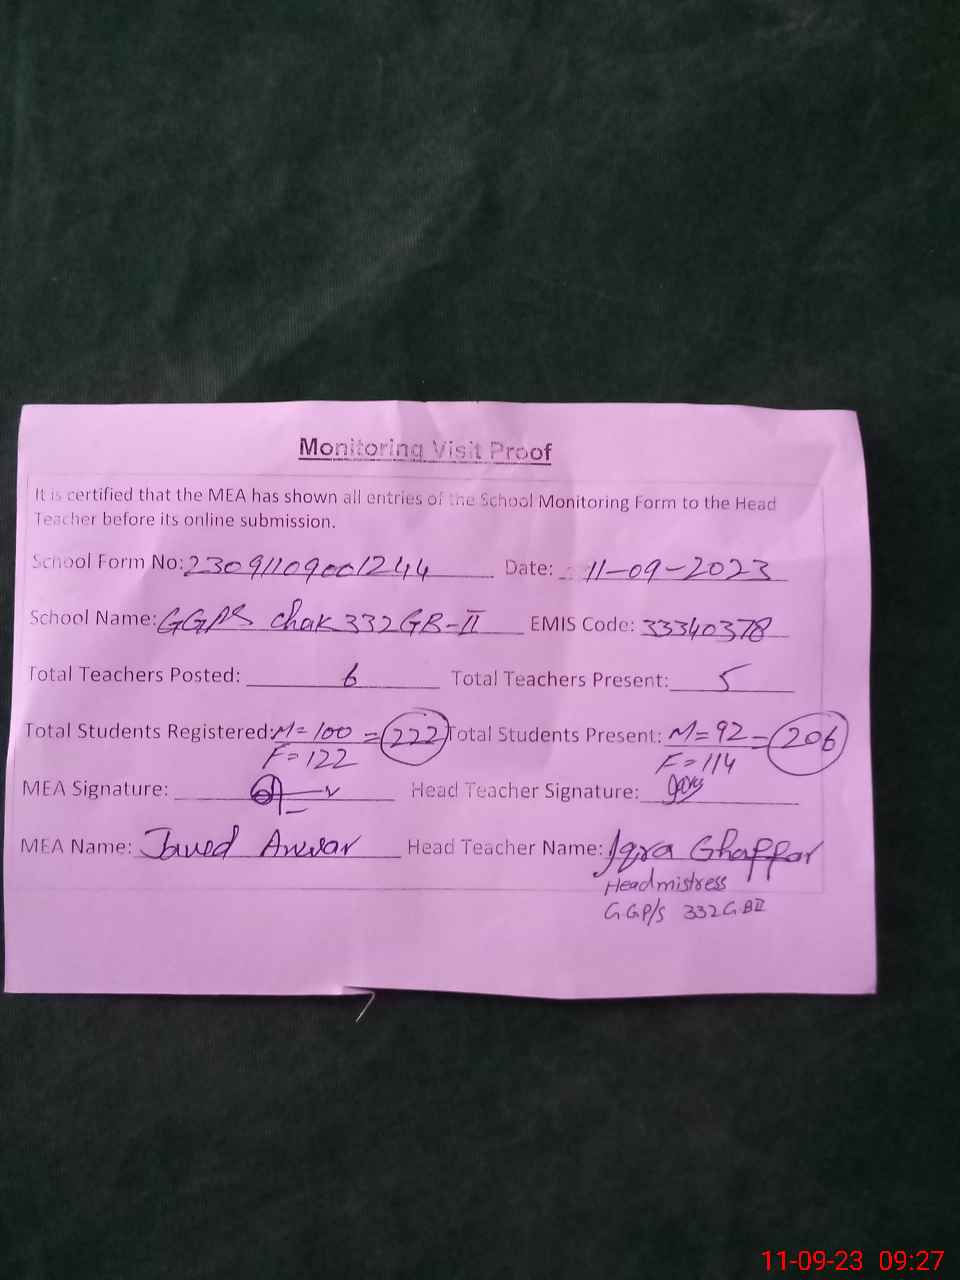 Monitoring Visit Proof
It is certified that the MEA has shown all entries of the School Monitoring Form to the Head
Teacher before its online submission.
School Form No: 23091109001244 Date: 11-09-2023
School Name: GGPS Chak 332GB-II EMIS Code: 33340378
Total Teachers Posted: 6 Total Teachers Present: 5
Total Students Registered: M=100 = 222 Total Students Present: M=92 = 206
F=122 F=114
MEA Signature: Head Teacher Signature:
MEA Name: Javed Anwar Head Teacher Name: Iqra Ghaffar
Headmistress
GGP/S 332GBII
11-09-23 09:27